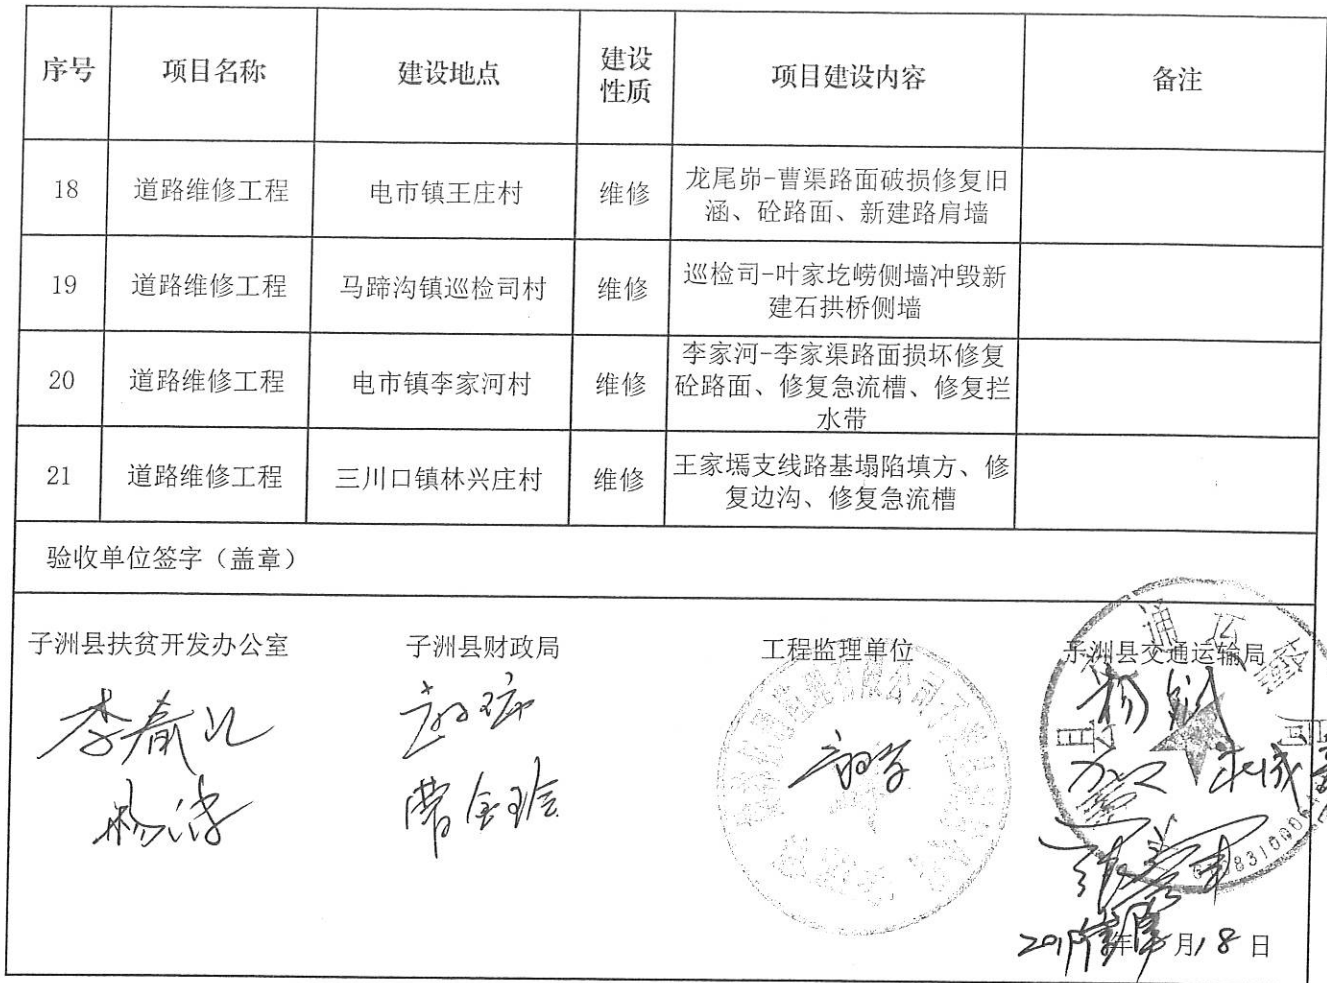 序号 项目名称 建设地点 建设性质 项目建设内容 备注
18 道路维修工程 电市镇王庄村 维修 龙尾峁-曹渠路面破损修复旧
涵、砼路面、新建路肩墙
19 道路维修工程 马蹄沟镇巡检司村 维修 巡检司-叶家圪崂侧墙冲毁新
建石拱桥侧墙
20 道路维修工程 电市镇李家河村 维修 李家河-李家渠路面损坏修复
砼路面、修复急流槽、修复拦
水带
21 道路维修工程 三川口镇林兴庄村 维修 王家墕支线路基塌陷填方、修
复边沟、修复急流槽
验收单位签字（盖章）
子洲县扶贫开发办公室 子洲县财政局 工程监理单位 子洲县交通运输局
年 月18日